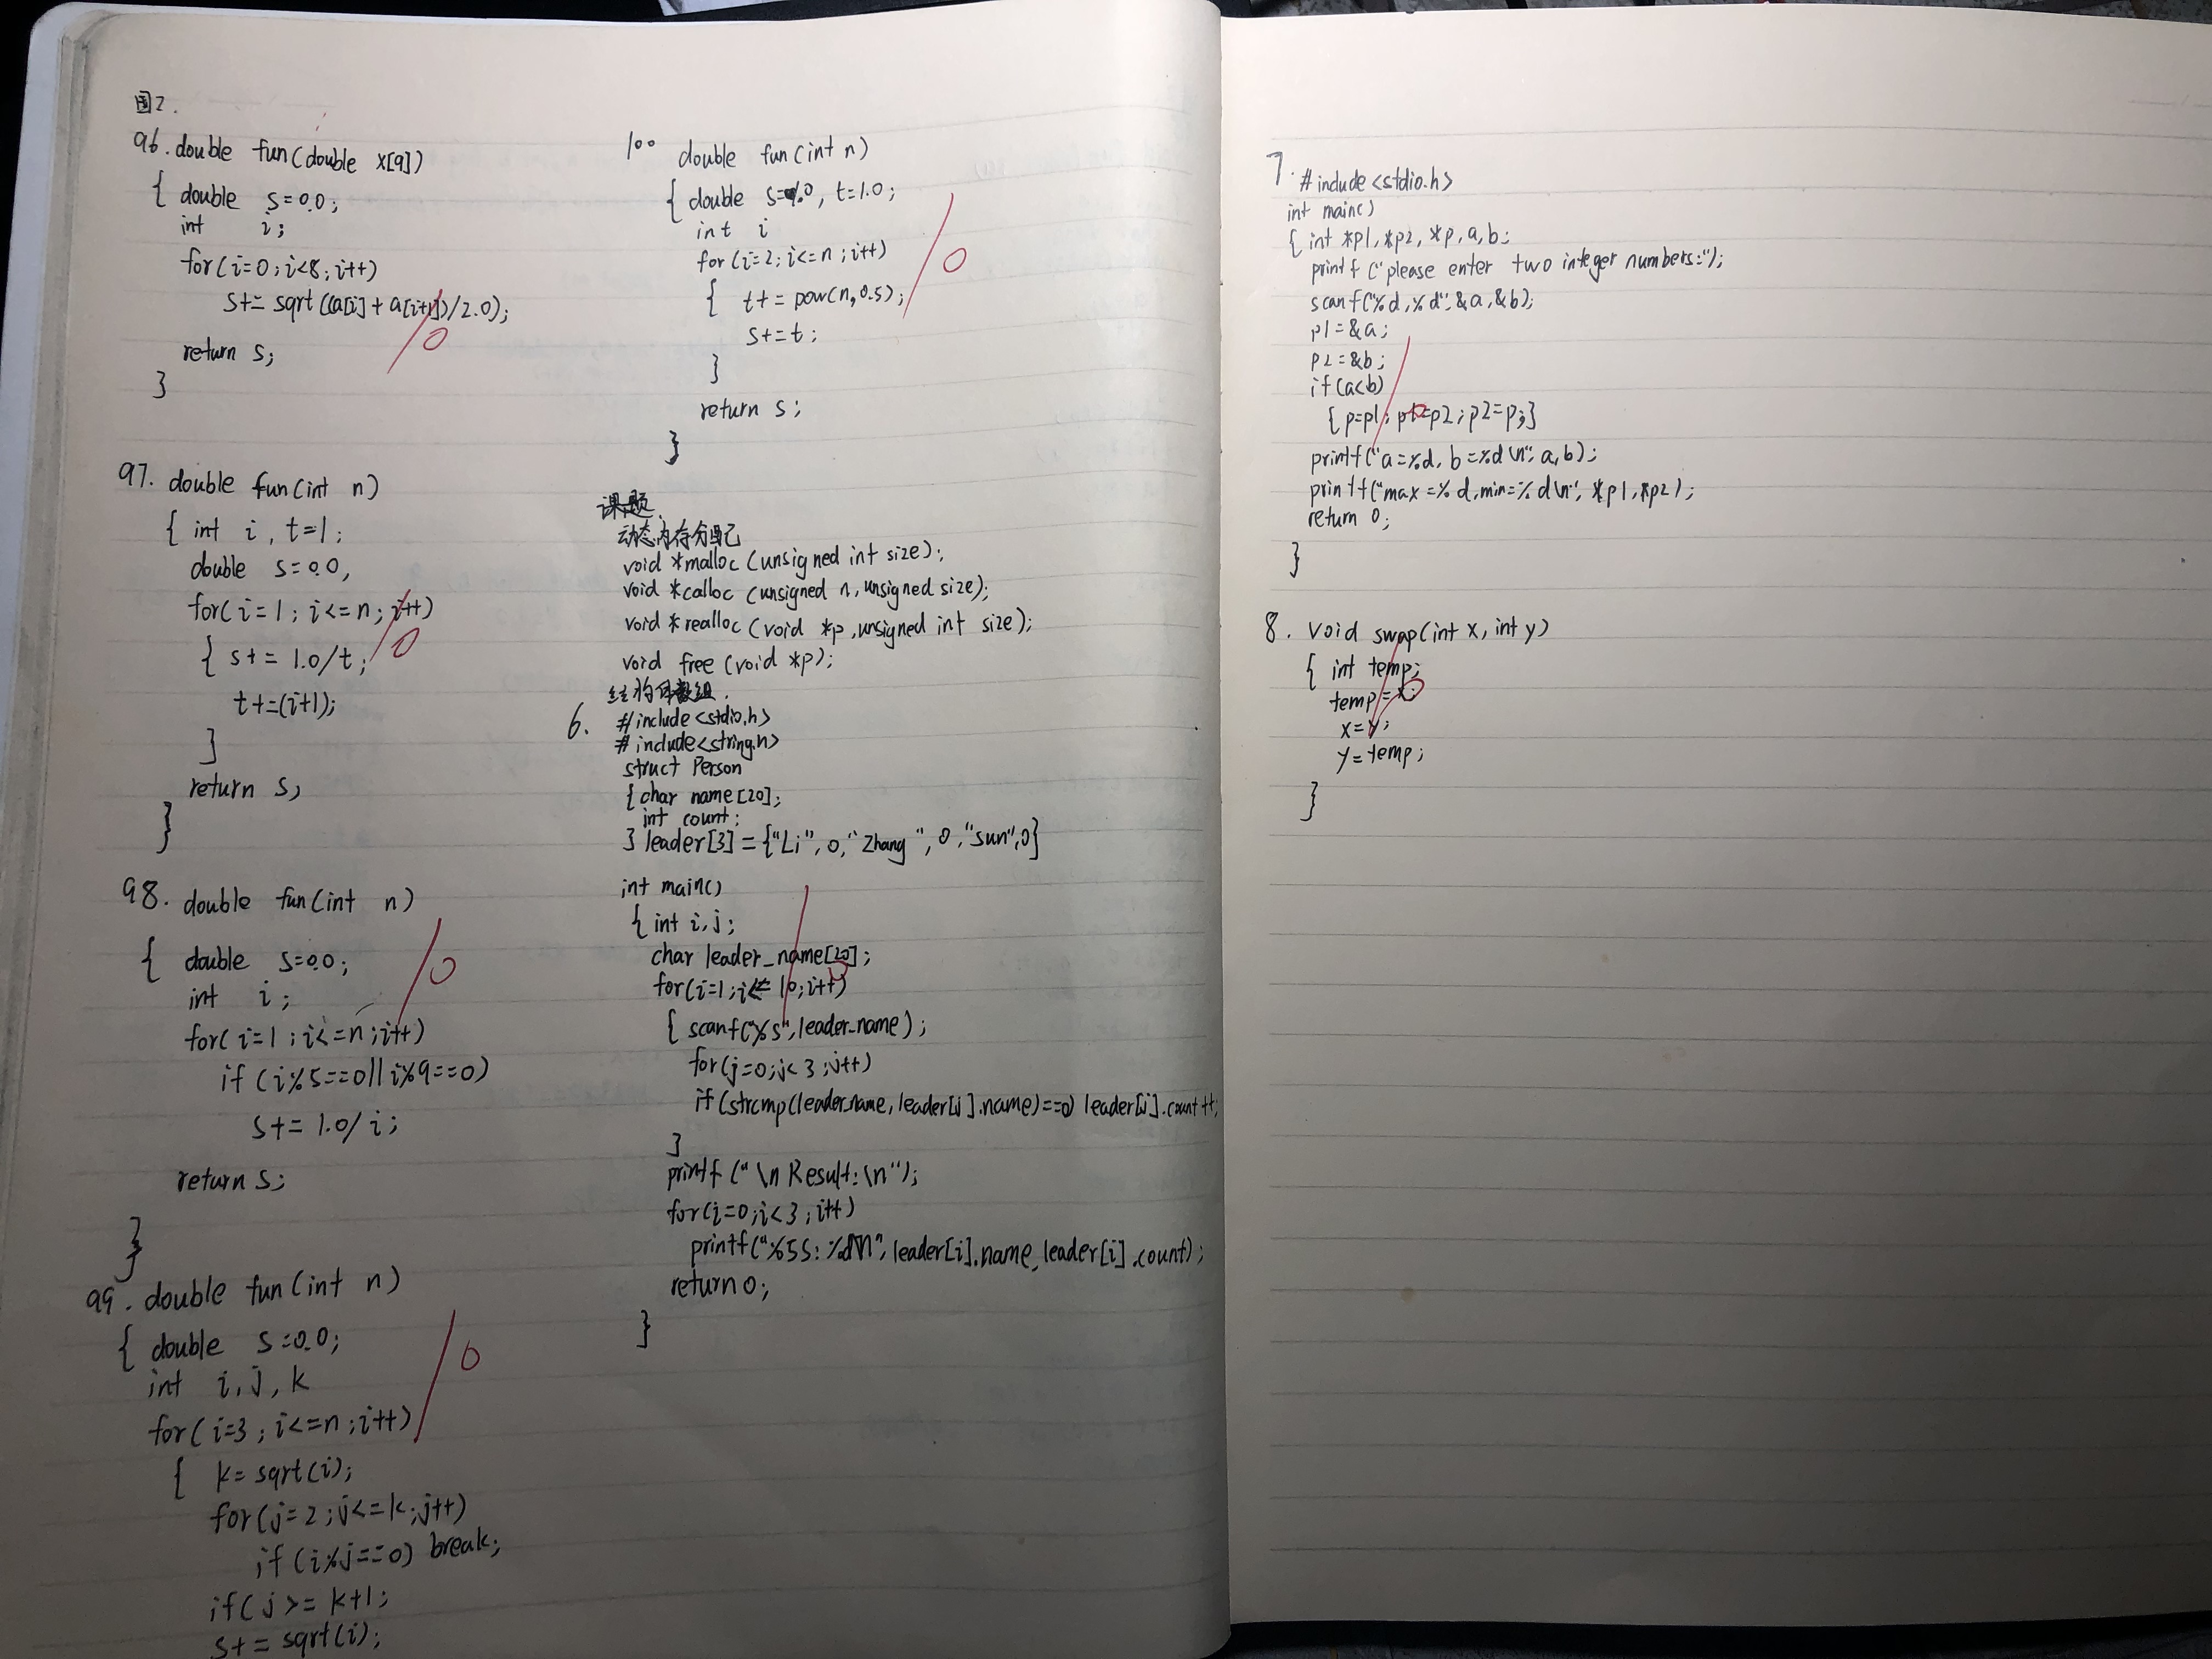 图2.
96. double fun(double x[9])
{ double s=0.0;
int i;
for(i=0;i<8;i++)
s+= sqrt((a[i]+a[i+1])/2.0);
return s;
}
97. double fun(int n)
{ int i, t=1;
double s=0.0,
for(i=1; i<=n; i++)
{ s+= 1.0/t;
t+=(i+1);
}
return s;
}
98. double fun(int n)
{ double s=0.0;
int i;
for(i=1;i<=n;i++)
if (i%5==0||i%9==0)
s+= 1.0/i;
return s;
}
99. double fun(int n)
{ double s=0.0;
int i,j,k
for(i=3;i<=n;i++)
{ k=sqrt(i);
for(j=2;j<=k;j++)
if(i%j==0) break;
if(j>=k+1;
s+= sqrt(i);
100 double fun(int n)
{ double s=1.0, t=1.0;
int i
for(i=2;i<=n;i++)
{ t+= pow(n,0.5);
s+=t;
}
return s;
}
动态内存分配
void *malloc (unsigned int size);
void *calloc (unsigned n, unsigned size);
void *realloc (void *p, unsigned int size);
void free (void *p);
结构体数组.
6. #include<stdio.h>
#include<string.h>
struct Person
{char name[20];
int count;
} leader[3]={"Li",0,"Zhang",0,"Sun",0}
int main()
{ int i,j;
char leader_name[20];
for(i=1;i<=10;i++)
{ scanf("%s",leader_name);
for(j=0;j<3;j++)
if(strcmp(leader_name,leader[j].name)==0) leader[j].count++;
}
printf("\n Result:\n");
for(i=0;i<3;i++)
printf("%5s:%d\n",leader[i].name,leader[i].count);
return 0;
}
7. #include<stdio.h>
int main()
{ int *p1,*p2,*p,a,b;
printf("please enter two integer numbers:");
scanf("%d,%d",&a,&b);
p1=&a;
p2=&b;
if(a<b)
{p=p1;p1=p2;p2=p;}
printf("a=%d, b=%d\n",a,b);
printf("max=%d,min=%d\n",*p1,*p2);
return 0;
}
8. void swap(int x, int y)
{ int temp;
temp=x;
x=y;
y=temp;
}